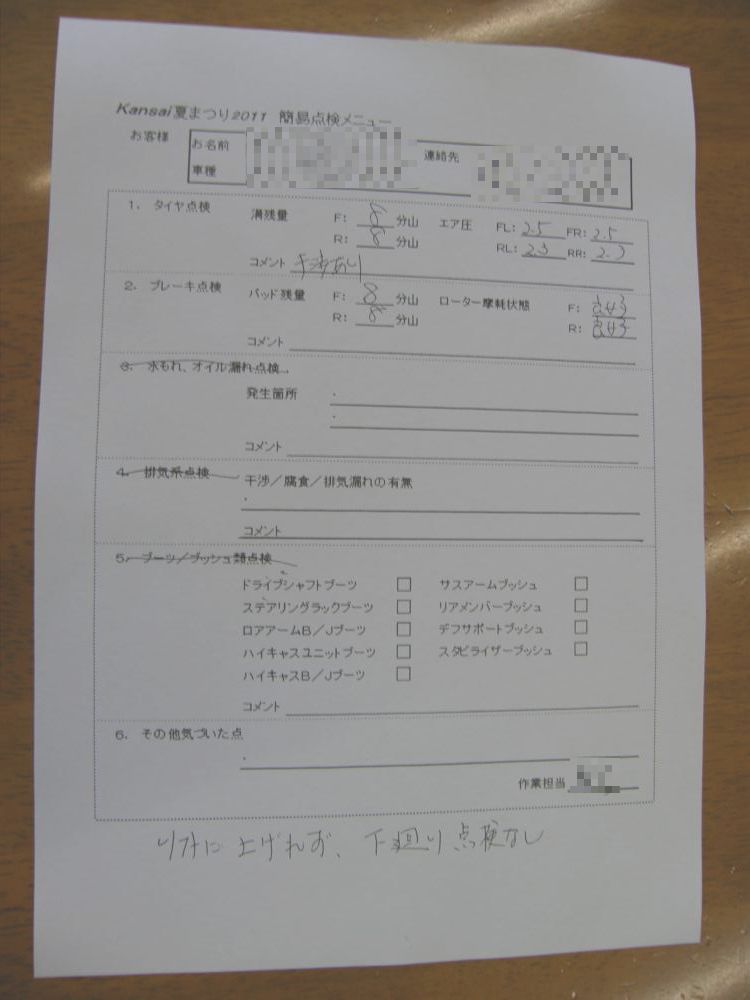 Kansai夏まつり2011 簡易点検メニュー
お客様 お名前 連絡先
車種
1. タイヤ点検 溝残量 F: 8 分山 エア圧 FL: 2.5 FR: 2.5
R: 8 分山 RL: 2.3 RR: 2.3
コメント 干渉あり
2. ブレーキ点検 パッド残量 F: 8 分山 ローター摩耗状態 F:
R: 8 分山 R:
コメント
3. 水もれ、オイル漏れ点検
発生箇所
コメント
4. 排気系点検 干渉/腐食/排気漏れの有無
コメント
5. ブーツ/ブッシュ類点検
ドライブシャフトブーツ □ サスアームブッシュ □
ステアリングラックブーツ □ リアメンバーブッシュ □
ロアアームB/Jブーツ □ デフサポートブッシュ □
ハイキャスユニットブーツ □ スタビライザーブッシュ □
ハイキャスB/Jブーツ □
コメント
6. その他気づいた点
作業担当
リフトに上げれず、下廻り点検なし